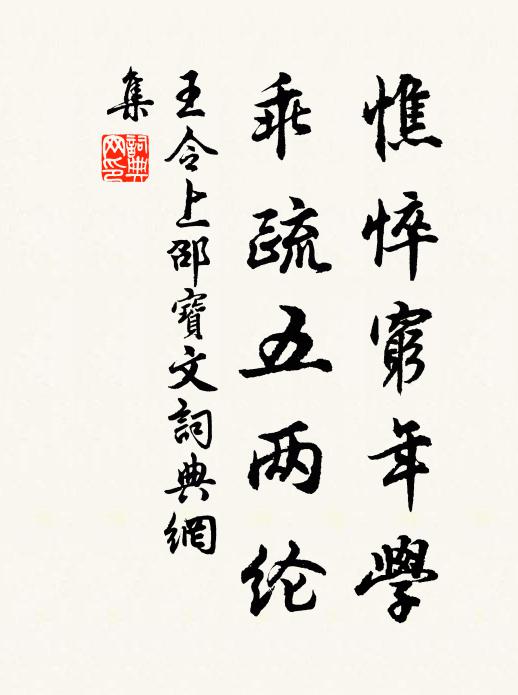 憔悴窮年學
乖疏五两纶
王令上邵寶文詞典網
集
詞典網印